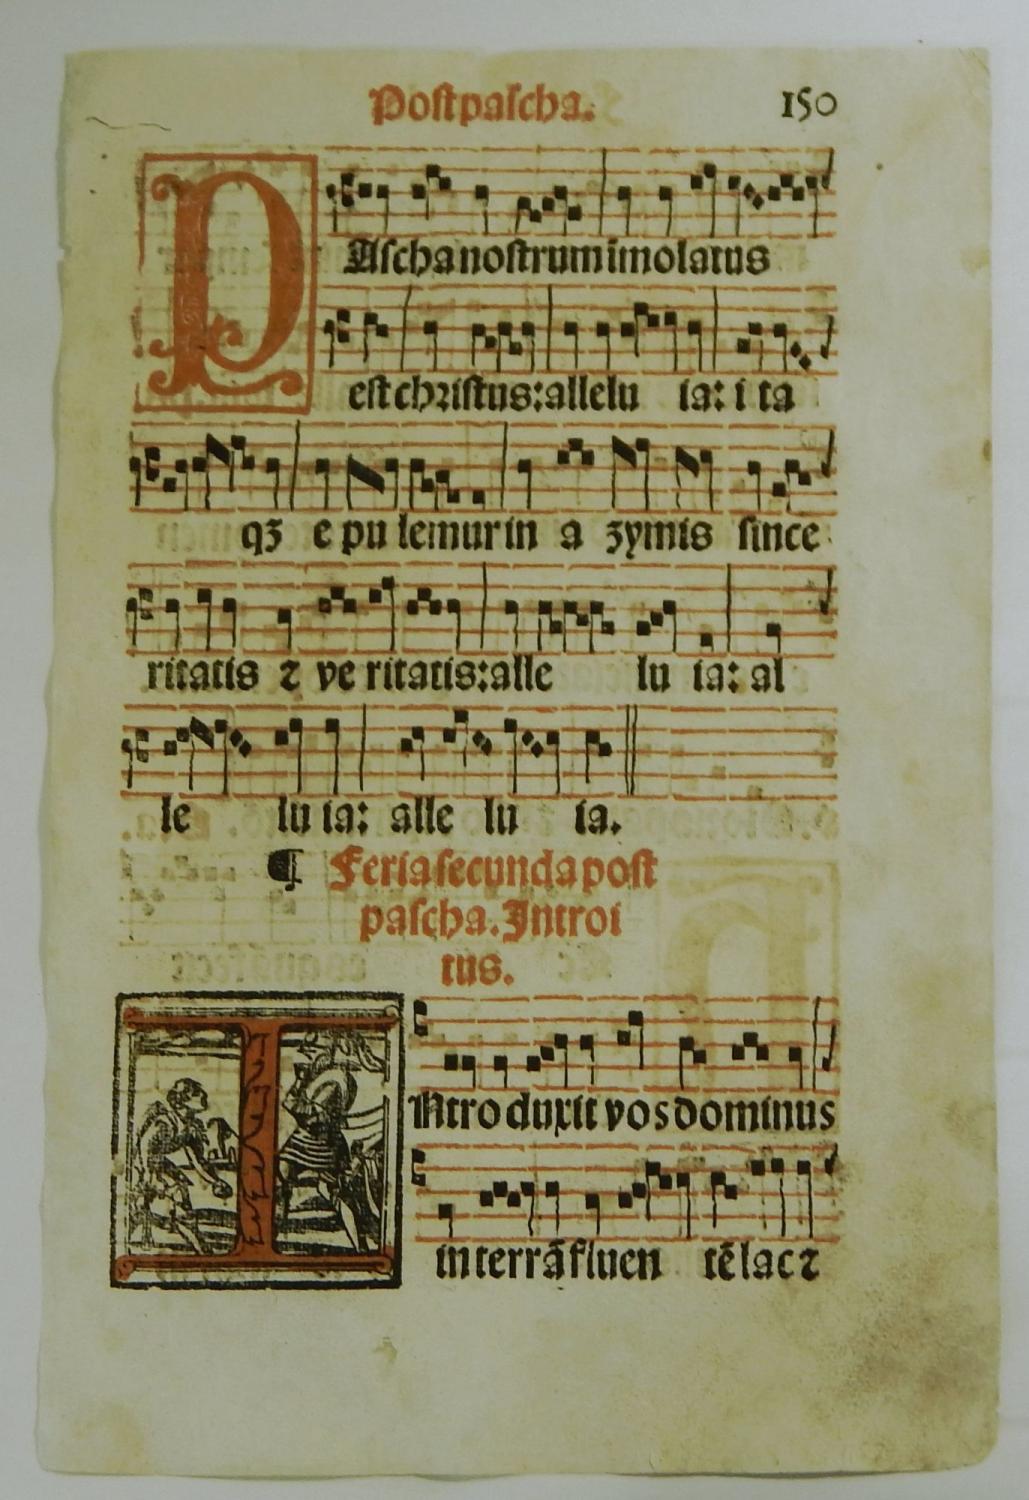 Post pascha. 150
PAscha nostrum īmolatus
est christus: allelu ia: i ta
qꝫ e pu lemur in a zymis since
ritatis ⁊ ve ritatis: alle lu ia: al
le lu ia: alle lu ia.
¶ Feria secunda post
pascha. Introi
tus.
INtro duxit vos dominus
in terrā fluen tē lac ⁊